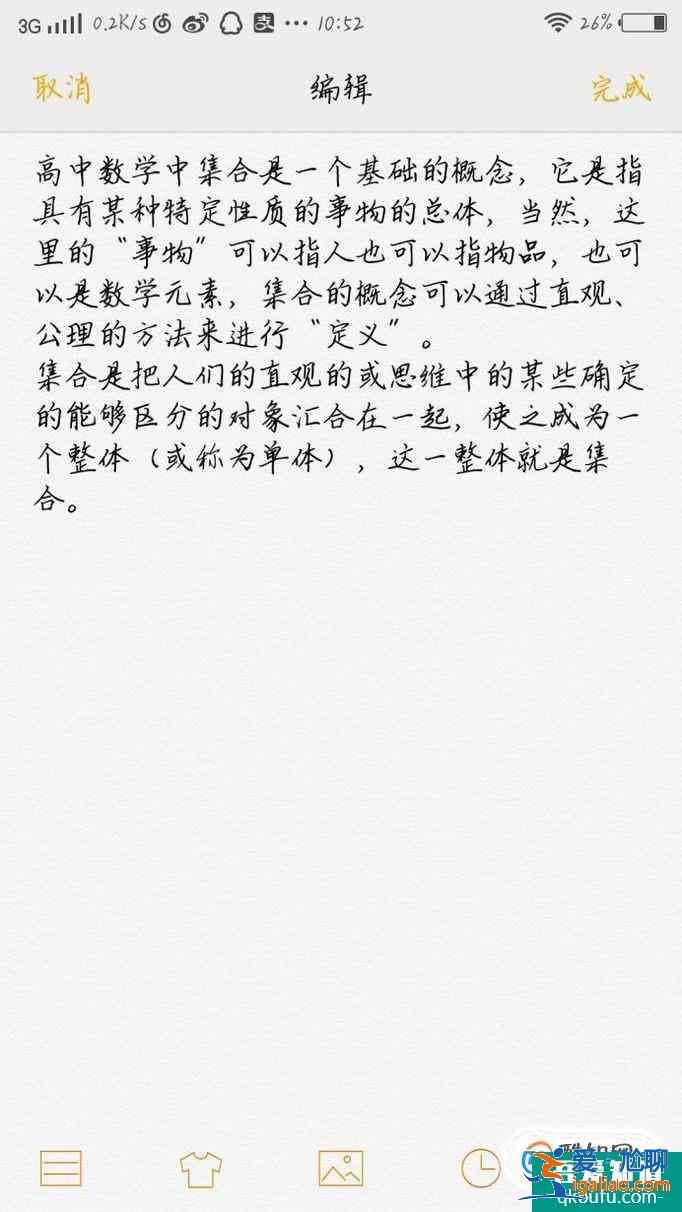 3G 0.2K/s 10:52 26%
取消 编辑 完成
高中数学中集合是一个基础的概念，它是指
具有某种特定性质的事物的总体，当然，这
里的“事物”可以指人也可以指物品，也可
以是数学元素，集合的概念可以通过直观、
公理的方法来进行“定义”。
集合是把人们的直观的或思维中的某些确定
的能够区分的对象汇合在一起，使之成为一
个整体（或称为单体），这一整体就是集
合。
爱尬聊
igaliao.com